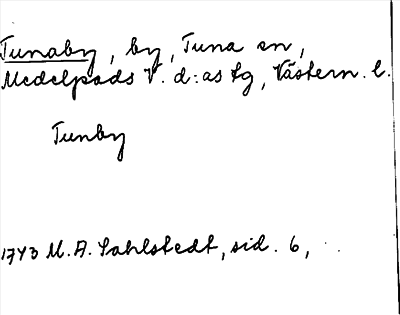 Tunaby, by, Tuna sn,
Medelpads V. d:as tg, Västern. l.
Tunby
1743 M. A. Sahlstedt, sid. 6,